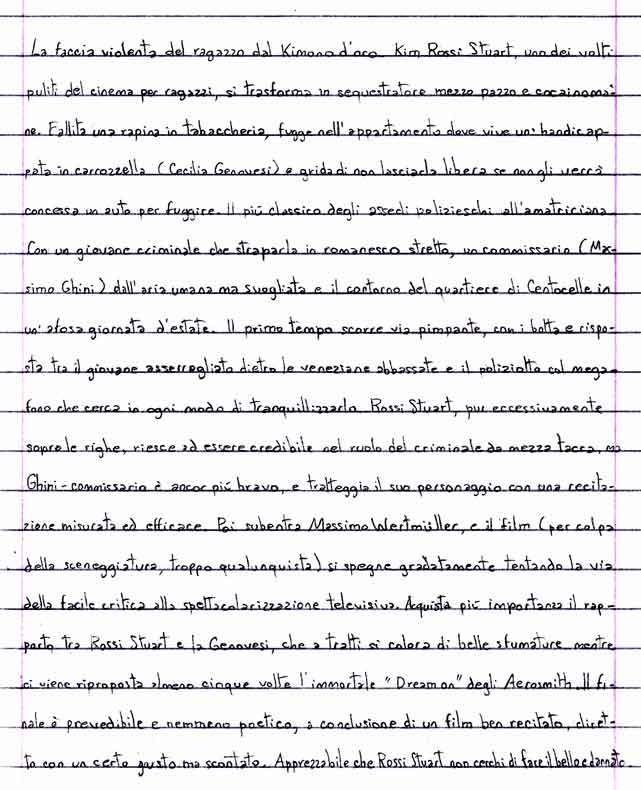 La faccia violenta del ragazzo dal Kimono d'oro. Kim Rossi Stuart, uno dei volti
puliti del cinema per ragazzi, si trasforma in sequestratore mezzo pazzo e cocainoma-
ne. Fallita una rapina in tabaccheria, fugge nell'appartamento dove vive un'handicap-
pata in carrozzella (Cecilia Genovesi) e grida di non lasciarla libera se non gli verrà
concessa un auto per fuggire. Il più classico degli assedi polizieschi all'amatriciana.
Con un giovane criminale che straparla in romanesco stretto, un commissario (Mas-
simo Ghini) dall'aria umana ma svogliata e il contorno del quartiere di Centocelle in
un'afosa giornata d'estate. Il primo tempo scorre via pimpante, con i botta e rispo-
sta tra il giovane asserragliato dietro le veneziane abbassate e il poliziotto col mega-
fono che cerca in ogni modo di tranquillizzarlo. Rossi Stuart, pur eccessivamente
sopra le righe, riesce ad essere credibile nel ruolo del criminale da mezza tacca, ma
Ghini-commissario è ancor più bravo, e tratteggia il suo personaggio con una recita-
zione misurata ed efficace. Poi subentra Massimo Wertmüller, e il film (per colpa
della sceneggiatura, troppo qualunquista) si spegne gradatamente tentando la via
della facile critica alla spettacolarizzazione televisiva. Acquista più importanza il rap-
porto tra Rossi Stuart e la Genovesi, che a tratti si colora di belle sfumature mentre
ci viene riproposta almeno cinque volte l'immortale "Dream on" degli Aerosmith. Il fi-
nale è prevedibile e nemmeno poetico, a conclusione di un film ben recitato, diret-
to con un certo gusto ma scontato. Apprezzabile che Rossi Stuart non cerchi di fare il bello e dannato.